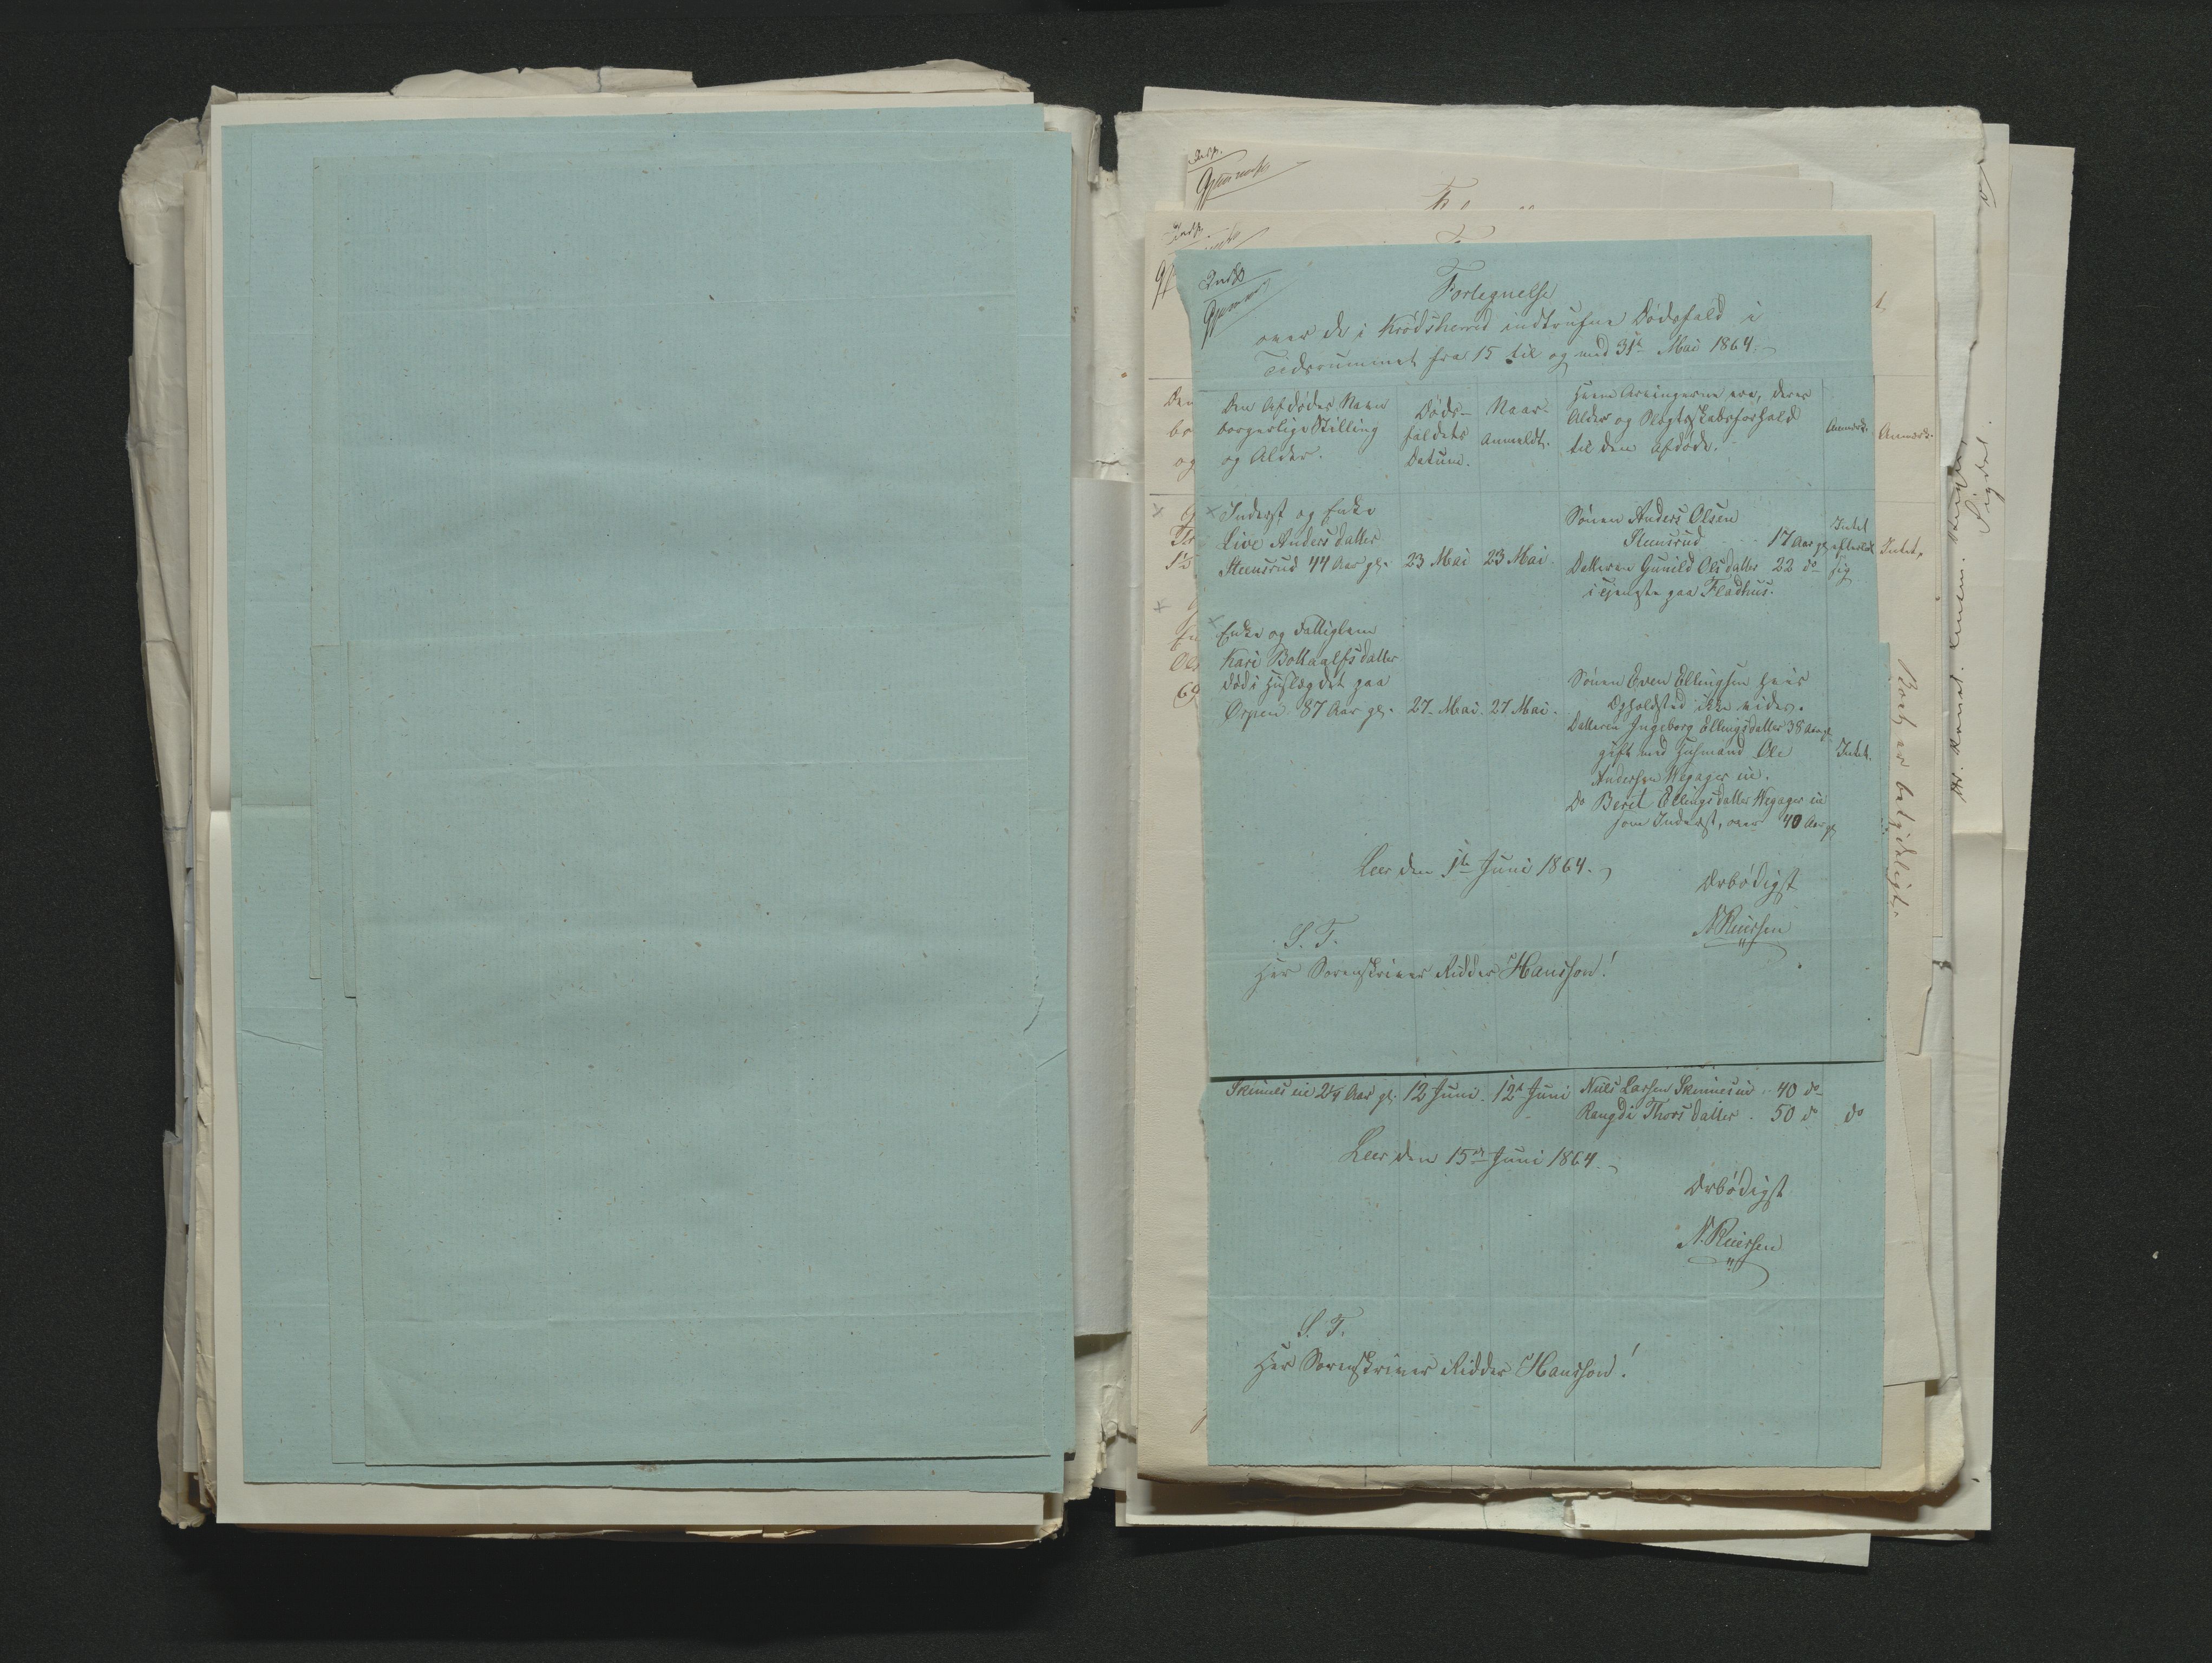 Fortegnelse
over de i Krødsherred indtrufne Dødsfald i
Tidsrummet fra 15 til og med 31te Mai 1864.
Den Afdødes Navn
borgerlige Stilling
og Alder.
Døds-
faldets
Datum.
Naar
Anmeldt.
Hvem Arvingerne ere, deres
Alder og Slægtskabsforhold
til den Afdøde.
Anmærk.
Anmærk.
Inderst og Enke
Live Andersdatter
Steensrud 44 Aar gl. 23 Mai 23 Mai.
Sønen Anders Olsen
Steensrud 17 Aar gl
Datteren Gunild Olsdatter 22 do
i Tjeneste paa Fladhus.
Intet
efterladt
sig
Intet.
Enke og Fattiglem
Kari Bottaalfsdatter
død i Huslægdet paa
Ørpen 87 Aar gl. 27. Mai. 27 Mai.
Sønen Even Ellingsen hvis
Opholdsted ikke vides.
Datteren Ingeborg Ellingsdatter 38 Aar gl
gift med Husmand Ole
Andersen Wegager eie.
Do Beret Ellingsdatter Wegager eie
som Inderst, over 40 Aar gl
Intet.
Leer den 1te Juni 1864.
Ærbødigst
N Ruersen
S. T.
Herr Sorenskriver Ridder Hansson!
Skinnes eie 2¼ Aar gl. 12 Juni. 12te Juni Niels Larsen Skinnes eie 40 do
Rangdi Thorsdatter. 50 do do
Leer den 15de Juni 1864.
Ærbødigst
N. Ruersen
S. T.
Herr Sorenskriver Ridder Hansson!
Boet er betydeligt.
Sigdal.